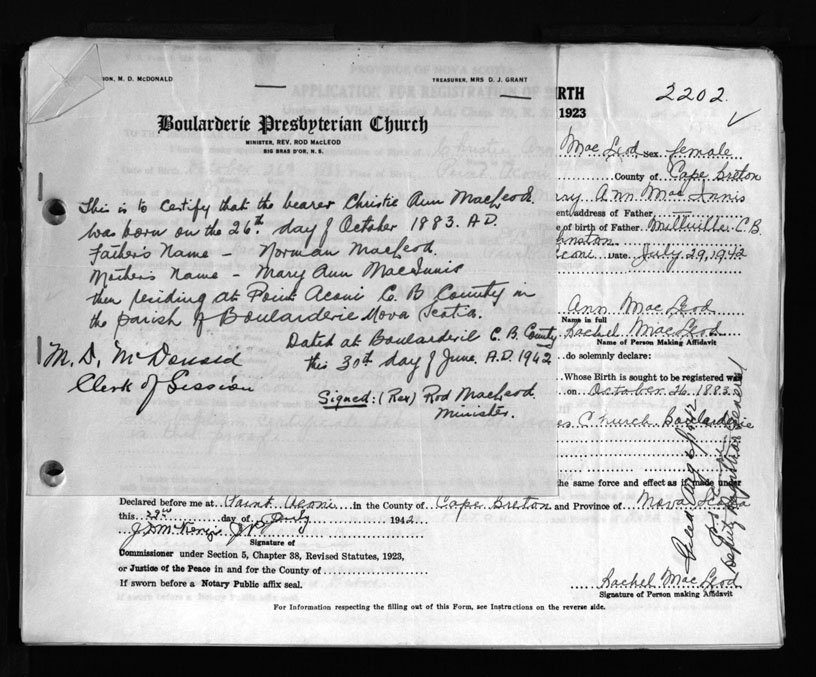 ON, M. D. McDONALD
TREASURER, MRS D. J. GRANT
Boularderie Presbyterian Church
MINISTER, REV. ROD MacLEOD
BIG BRAS D'OR, N. S.
This is to certify that the bearer Christie Ann MacLeod
was born on the 26th day of October 1883. A.D.
Father's Name - Norman MacLeod.
Mother's Name - Mary Ann MacInnis
then residing at Point Aconi C. B County in
the parish of Boularderie Nova Scotia.
Dated at Boularderie C. B. County
this 30th day of June, A.D. 1942
M. D. McDonald
Clerk of Session
Signed: (Rev) Rod MacLeod.
Minister.
RTH
1923
2202
MacLeod Sex female
County of Cape Breton
ary Ann MacInnis
ent address of Father
e of birth of Father Millville C.B.
coni Date July 29, 1942
Ann MacLeod
Name in full
Rachel MacLeod
Name of Person Making Affidavit
do solemnly declare:
Whose Birth is sought to be registered was
on October 26 1883
es Church Boularderie
the same force and effect as if made under
Declared before me at Point Aconi in the County of Cape Breton and Province of Nova Scotia
this 29th day of July 1942
Signature of
Commissioner under Section 5, Chapter 38, Revised Statutes, 1923,
or Justice of the Peace in and for the County of
If sworn before a Notary Public affix seal.
Rachel MacLeod
Signature of Person making Affidavit
For Information respecting the filling out of this Form, see Instructions on the reverse side.
Deputy Registrar General